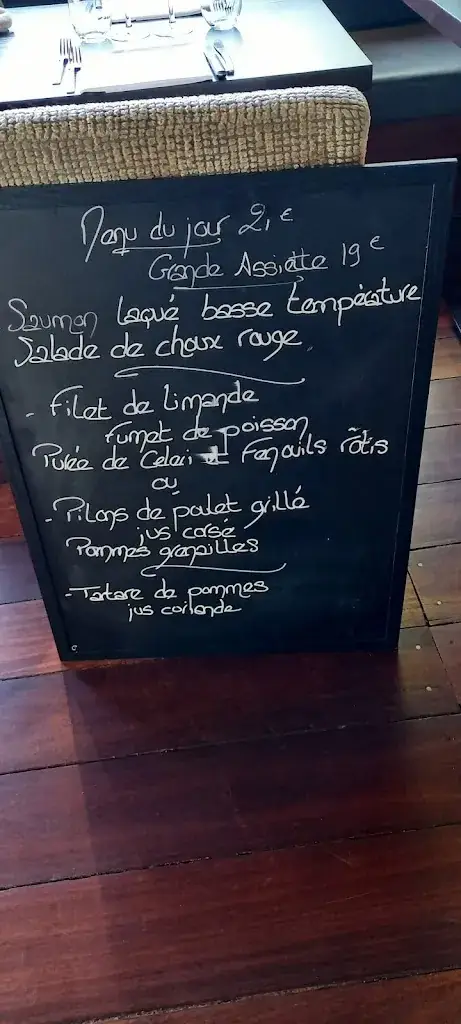 Menu du jour 21 €
Grande Assiette 19 €
Saumon laqué basse température
Salade de choux rouge
- Filet de limande
fumet de poisson
Purée de Celeri et Fenouils rôtis
ou
- Pilons de poulet grillé
jus corsé
Pommes grenailles
- Tartare de pommes
jus coriande